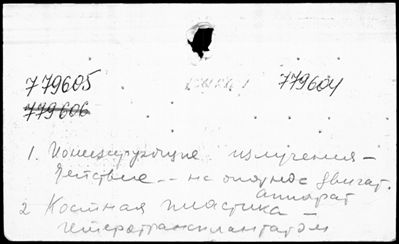 779605 779604
779606
1. Ионизирующие излучения -
действие -- на опорно-двигат.
аппарат
2 Костная пластика -
гетеротрансплантатом